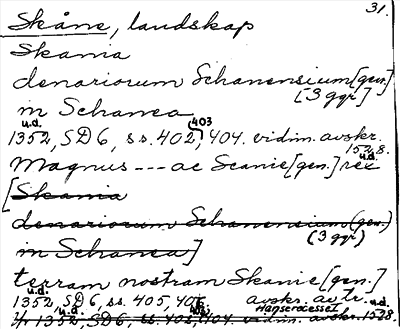 31.
Skåne, landskap
Skania
denariorum Schanensium [gen.]
[3 ggr]
in Schanea
u.d. 403
1352, SD6, ss. 402, 404. vidim. avskr.
1528.
u.d.
Magnus --- ac Scanie [gen.] rex
[Skania
denariorum Schanensium (gen.)
(3 ggr)
in Schanea]
terram nostram Skanie [gen.]
u.d.
1352, SD6, ss. 405, 406. avskr. av tr. u.d.
Hanserecesse I
1352, SD6, ss. 402, 404 vidim. avskr. 1528.